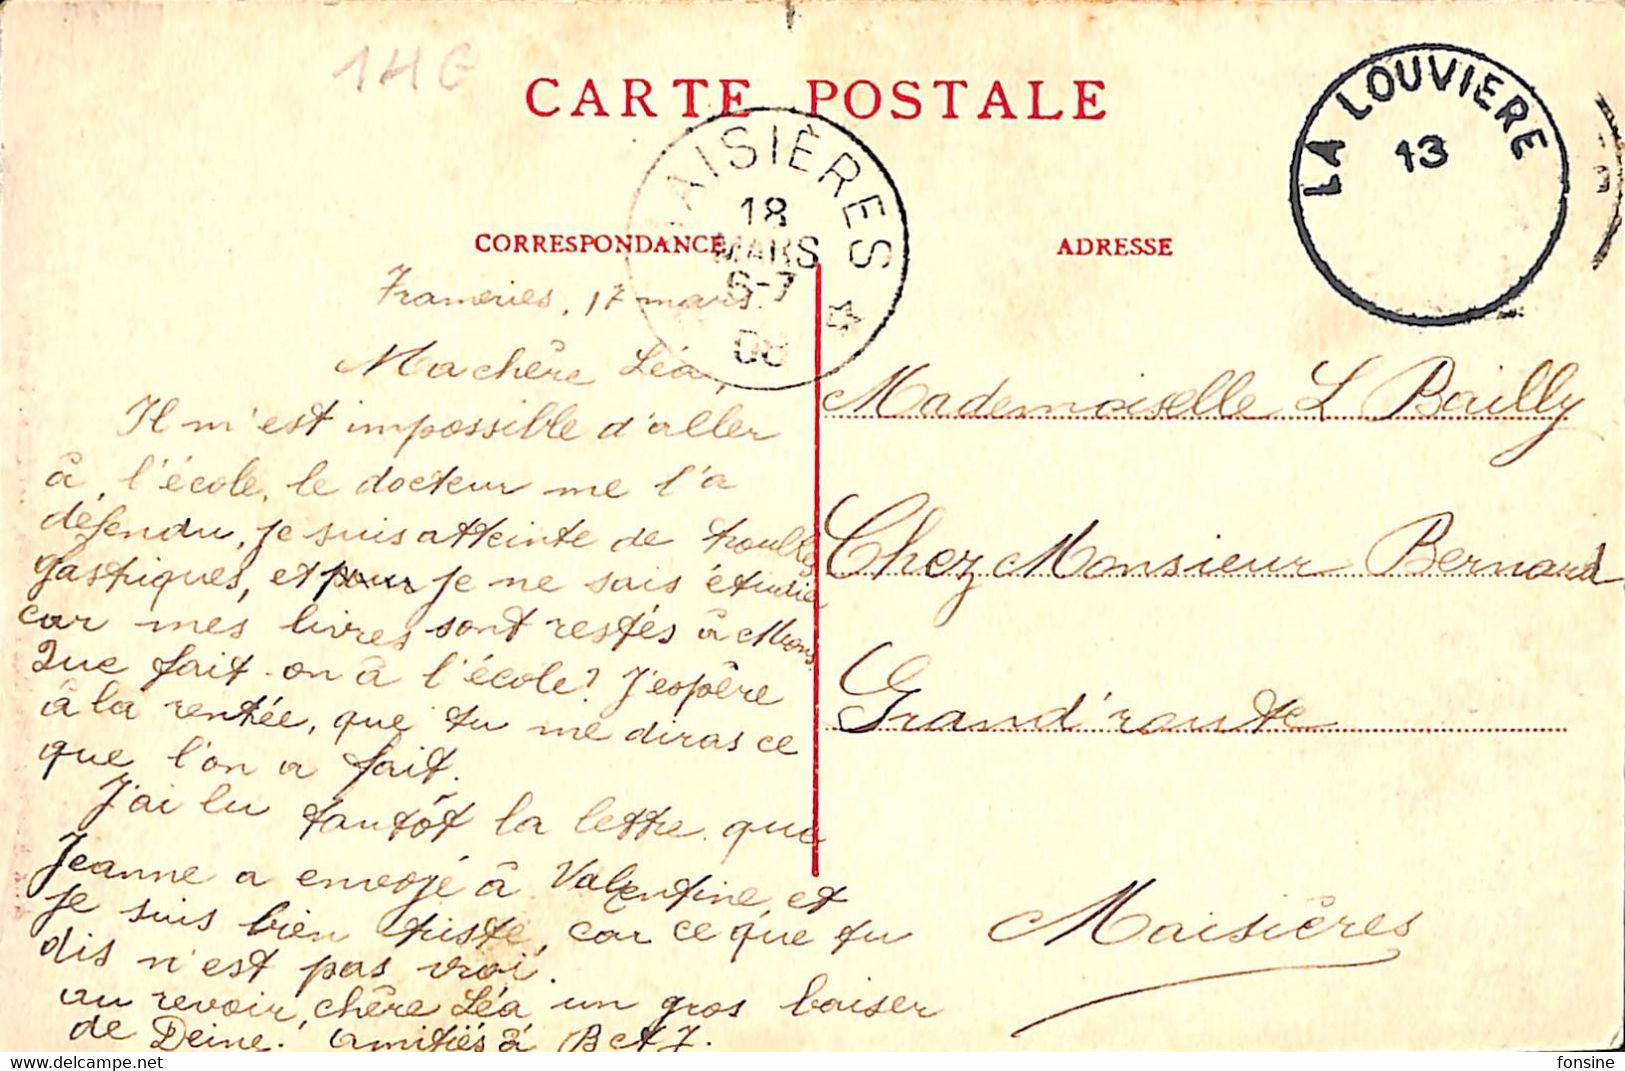 1HG
CARTE POSTALE
MAISIÈRES
18
MARS
6-7
08
LA LOUVIERE
13
CORRESPONDANCE
ADRESSE
Frameries, 17 mars.
Ma chère Léa,
Il m'est impossible d'aller
à l'école, le docteur me l'a
défendu, je suis atteinte de troubles
gastriques, et je ne sais étudier
car mes livres sont restés à Mons.
Que fait-on à l'école? J'espère
à la rentrée, que tu me diras ce
que l'on a fait.
J'ai lu tantôt la lettre que
Jeanne a envoyé à Valentine et
je suis bien triste, car ce que tu
dis n'est pas vrai.
au revoir, chère Léa un gros baiser
de Deine. amitiés à B et J.
Mademoiselle L Bailly
Chez Monsieur Bernard
Grand'route
Maisières
fonsine